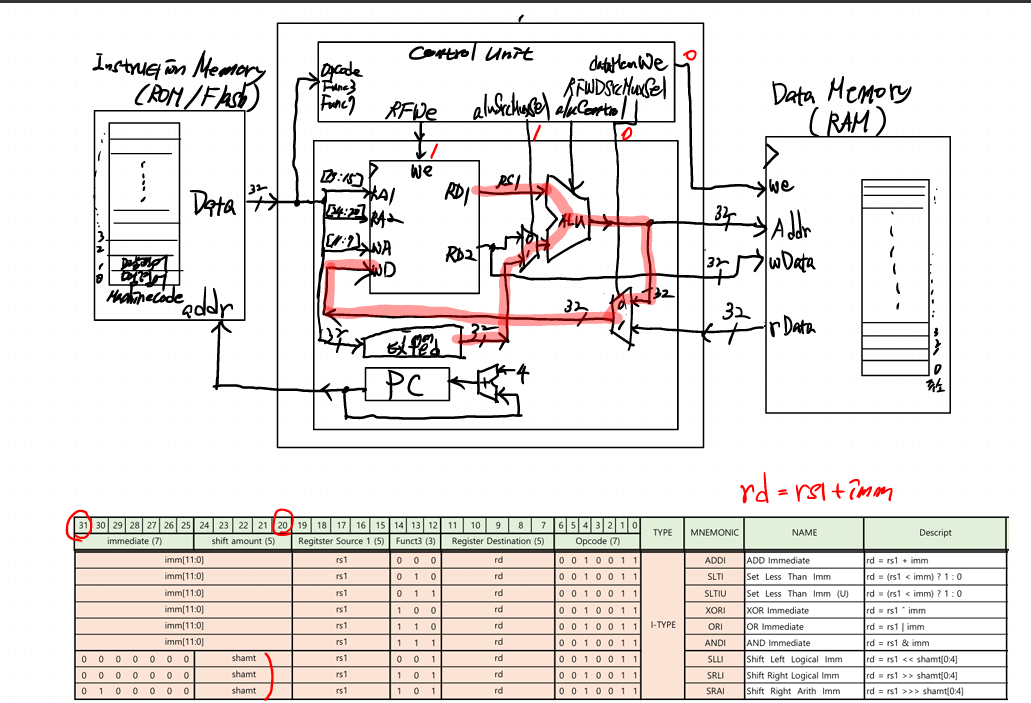 Control Unit
Instruction Memory
(ROM/Flash)
Opcode
Func3
Func7
RFWe
aluSrcMuxSel
aluControl
dataMemWe
RFWDSrcMuxSel
0
1
1
0
Data Memory
(RAM)
Data
32
[19:15]
[24:20]
[11:7]
RA1
RA2
WA
WD
We
RD1
RD2
RS1
ALU
0
1
32
we
Addr
32
wData
32
rData
32
32
0
1
32
imm
32
PC
+
4
addr
Machine Code
3
2
1
0
3
2
1
0
rd = rs1 + imm
31 30 29 28 27 26 25 24 23 22 21 20 19 18 17 16 15 14 13 12 11 10 9 8 7 6 5 4 3 2 1 0 TYPE MNEMONIC NAME Descript
immediate (7) shift amount (5) Regitster Source 1 (5) Funct3 (3) Register Destination (5) Opcode (7)
imm[11:0] rs1 0 0 0 rd 0 0 1 0 0 1 1 ADDI ADD Immediate rd = rs1 + imm
imm[11:0] rs1 0 1 0 rd 0 0 1 0 0 1 1 SLTI Set Less Than Imm rd = (rs1 < imm) ? 1 : 0
imm[11:0] rs1 0 1 1 rd 0 0 1 0 0 1 1 SLTIU Set Less Than Imm (U) rd = (rs1 < imm) ? 1 : 0
imm[11:0] rs1 1 0 0 rd 0 0 1 0 0 1 1 XORI XOR Immediate rd = rs1 ^ imm
imm[11:0] rs1 1 1 0 rd 0 0 1 0 0 1 1 I-TYPE ORI OR Immediate rd = rs1 | imm
imm[11:0] rs1 1 1 1 rd 0 0 1 0 0 1 1 ANDI AND Immediate rd = rs1 & imm
0 0 0 0 0 0 0 shamt rs1 0 0 1 rd 0 0 1 0 0 1 1 SLLI Shift Left Logical Imm rd = rs1 << shamt[0:4]
0 0 0 0 0 0 0 shamt rs1 1 0 1 rd 0 0 1 0 0 1 1 SRLI Shift Right Logical Imm rd = rs1 >> shamt[0:4]
0 1 0 0 0 0 0 shamt rs1 1 0 1 rd 0 0 1 0 0 1 1 SRAI Shift Right Arith Imm rd = rs1 >>> shamt[0:4]